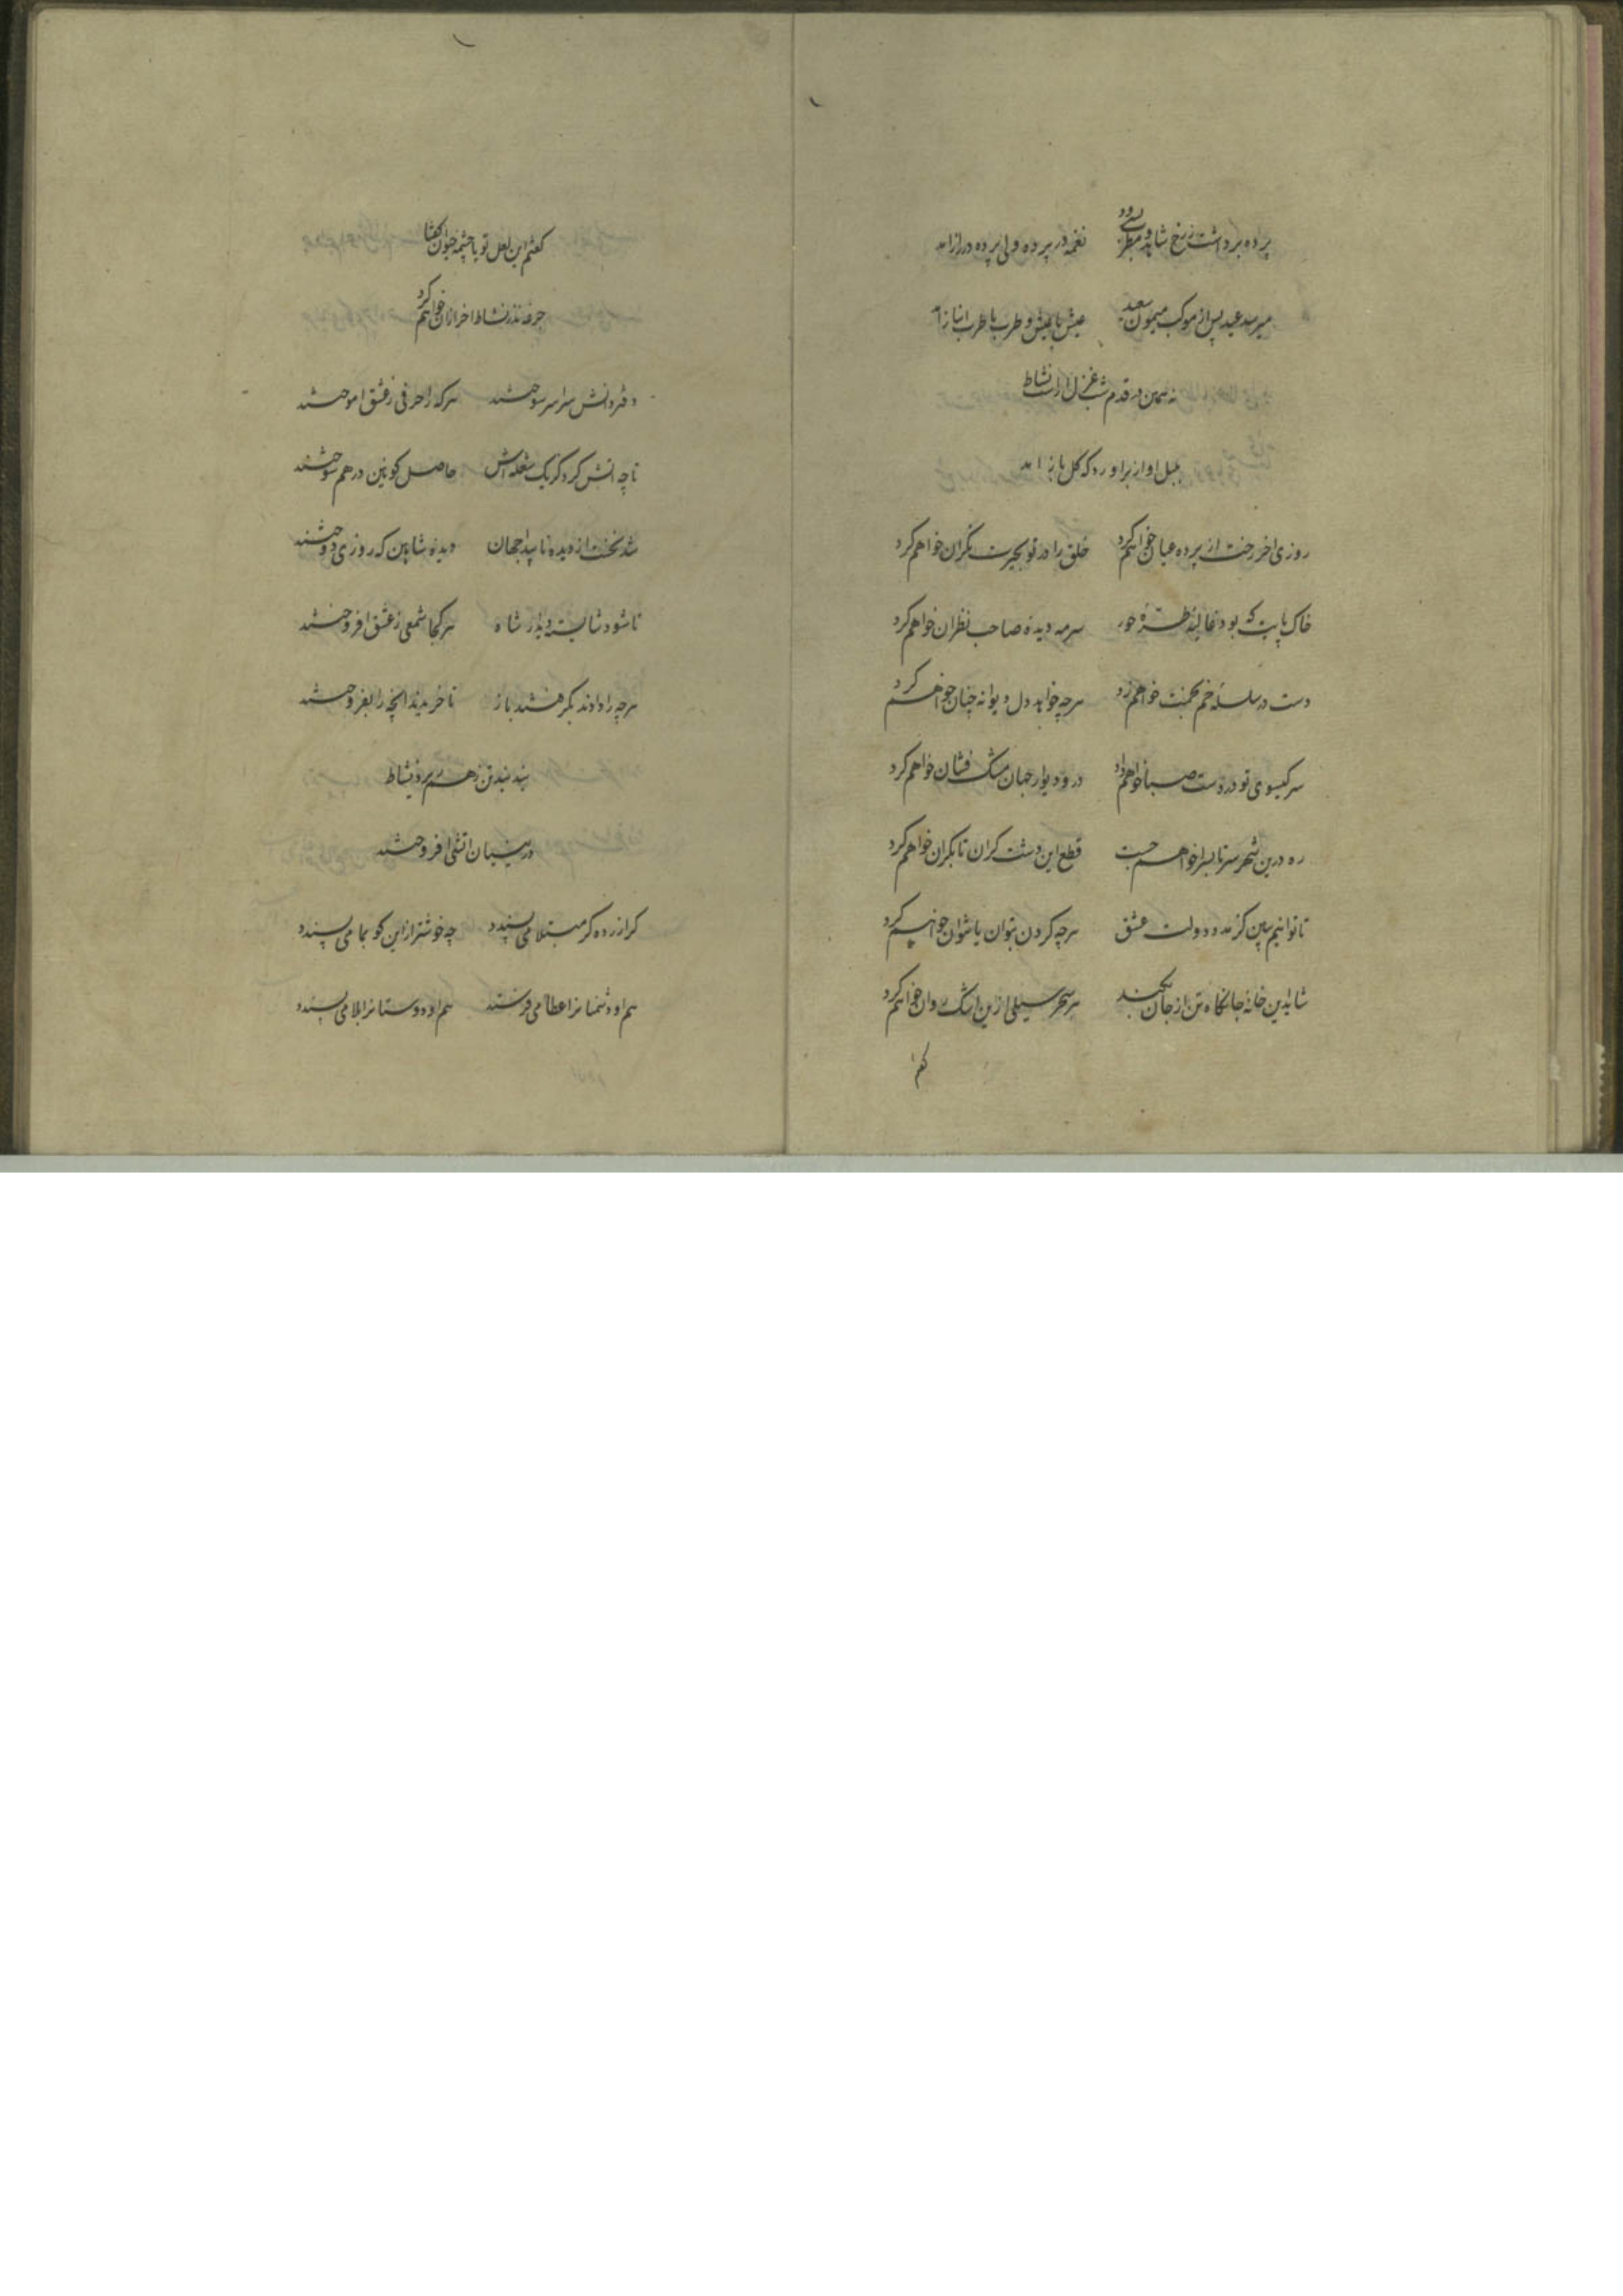 پرده برداشت ز رخ شاهد و مطرب ز سرود نغمه در پرده ولی پرده در از آمد
میرسد عید پس از موکب میمون سعید عیش با عیش و طرب با طرب انباز آمد
نه همین در قدم شب غزل آراست نشاط
بلبل آواز برآورد که گل باز آمد
روزی آخر رخت از پرده عیان خواهم کرد خلق را در تو بحیرت نگران خواهم کرد
خاک پایت که بود غالیهٔ طرهٔ حور سرمه دیده صاحب نظران خواهم کرد
دست در سلسلهٔ خم بخمت خواهم زد هرچه خواهد دل دیوانه چنان خواهم کرد
سر گیسوی تو در دست صبا خواهم داد در و دیوار جهان مشک فشان خواهم کرد
ره درین شهر سرتابسرا خواهم جست قطع این دشت کران تا بکران خواهم کرد
تا توانیم ببین گر مدد دولت عشق هرچه کردن بتوان یا نتوان خواهم کرد
شاید این خانهٔ جانکاه تن از جان بکند هر سحر سیلی ازین اشک روان خواهم کرد
گفتم
گفتم این لعل تو یا چشمهٔ حیوان گفتا
جرعه نذر نشاط آخر از آن خواهم کرد
دفتر دانش سراسر سوختند هر که را حرفی ز عشق آموختند
تا چه آتش کرد کز یک شعله‌اش حاصل کونین در هم سوختند
شد نخست از دیده ناپیدا جهان دیدهٔ شاهین که روزی دوختند
تا شود شایستهٔ دیدار شاه هر کجا شمعی ز عشق افروختند
هرچه را دادند بگرفتند باز تا خریدند آنچه را بفروختند
بند بند تن ز هم برد نشاط
در نیستان آتشی افروختند
گر آزرده گر مبتلا می پسندد چه خوشتر ازین کو بما می پسندد
هم او دشمنانرا عطا می فرستد هم او دوستانرا بلا می پسندد